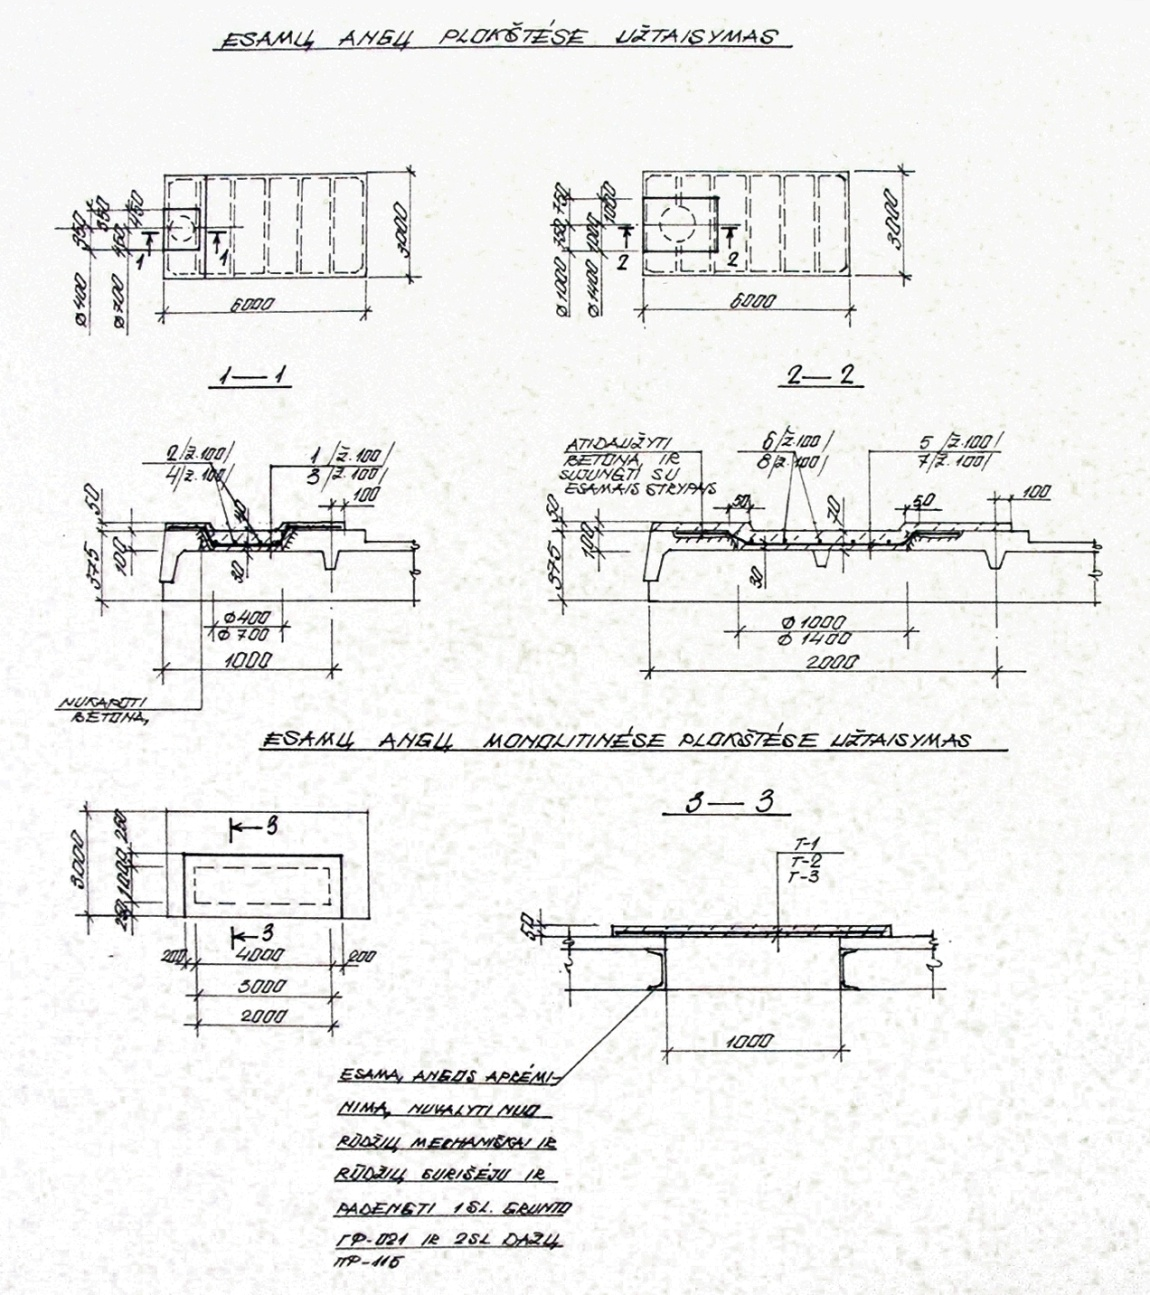 ESAMŲ ANGŲ PLOKŠTĖSE UŽTAISYMAS
350
350
450
450
Ø400
Ø700
1
1
3000
6000
750
350
1050
1000
Ø1000
Ø1400
2
2
3000
6000
1—1
2—2
2/Ž.100/
4/Ž.100/
1/Ž.100/
3/Ž.100/
100
50
375
100
40
30
Ø400
Ø700
1000
NUKAPOTI
BETONĄ
ATIDAUŽYTI
BETONĄ IR
SUJUNGTI SU
ESAMAIS STRYPAIS
6/Ž.100/
8/Ž.100/
5/Ž.100/
7/Ž.100/
50
50
100
50
375
100
70
30
Ø1000
Ø1400
2000
ESAMŲ ANGŲ MONOLITINĖSE PLOKŠTĖSE UŽTAISYMAS
3—3
3
3
3000
250
1000
250
200
4000
200
3000
2000
T-1
T-2
T-3
50
1000
ESAMĄ ANGOS APRĖMI-
NIMĄ NUVALYTI NUO
RŪDŽIŲ MECHANIŠKAI IR
RŪDŽIŲ SURIŠĖJU IR
PADENGTI 1 SL. GRUNTO
ГФ-021 IR 2SL DAŽŲ
ПФ-115